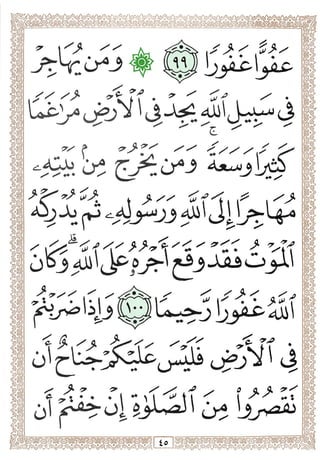 عَفُوًّا غَفُورًا ۝٩٩ ۞ وَمَن يُهَاجِرْ
فِى سَبِيلِ ٱللَّهِ يَجِدْ فِى ٱلْأَرْضِ مُرَٰغَمًا
كَثِيرًا وَسَعَةً ۚ وَمَن يَخْرُجْ مِنۢ بَيْتِهِۦ
مُهَاجِرًا إِلَى ٱللَّهِ وَرَسُولِهِۦ ثُمَّ يُدْرِكْهُ
ٱلْمَوْتُ فَقَدْ وَقَعَ أَجْرُهُۥ عَلَى ٱللَّهِ ۗ وَكَانَ
ٱللَّهُ غَفُورًا رَّحِيمًا ۝١٠٠ وَإِذَا ضَرَبْتُمْ
فِى ٱلْأَرْضِ فَلَيْسَ عَلَيْكُمْ جُنَاحٌ أَن
تَقْصُرُوا۟ مِنَ ٱلصَّلَوٰةِ إِنْ خِفْتُمْ أَن
٤٥